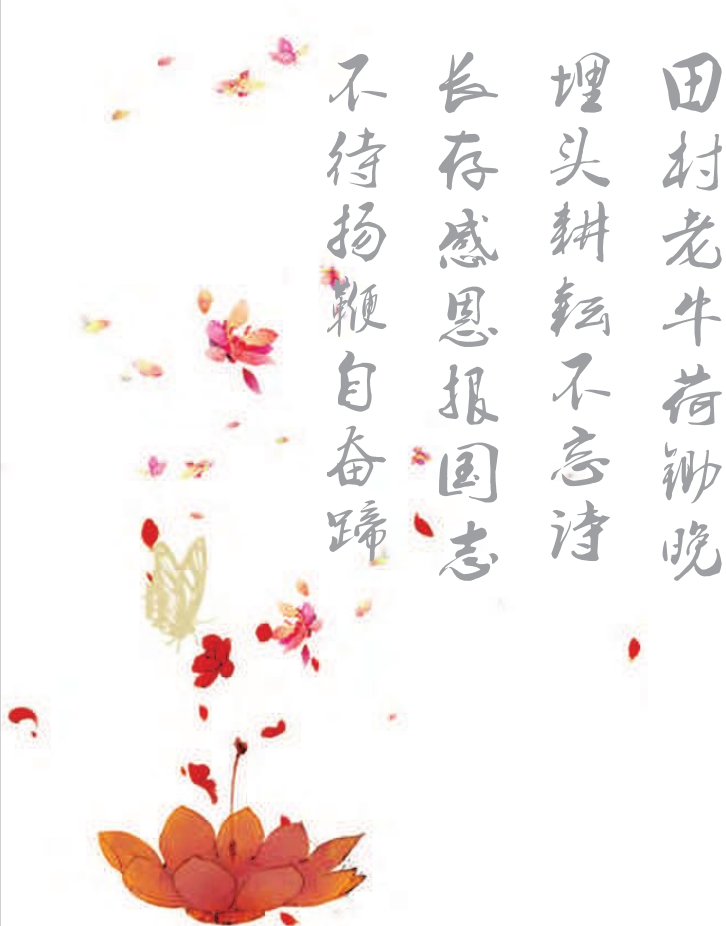 田村老牛荷锄晚
埋头耕耘不忘诗
长存感恩报国志
不待扬鞭自奋蹄